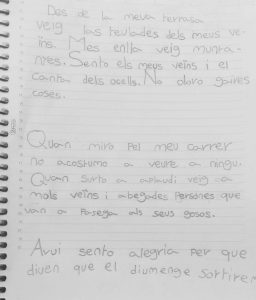 Des de la meva terrassa
veig las teulades dels meus ve-
ïns. Mes enlla veig munta-
nyes. Sento els meus veïns i el
cant dels ocells. No oloro gaires
coses.
Quan miro pel meu carrer
no acostumo a veure a ningu.
Quan surto a aplaudi veig a
mols veïns i abegades persones que
van a pasega als seus gosos.
Avui sento alegria per que
diuen que el diumenge sortirem